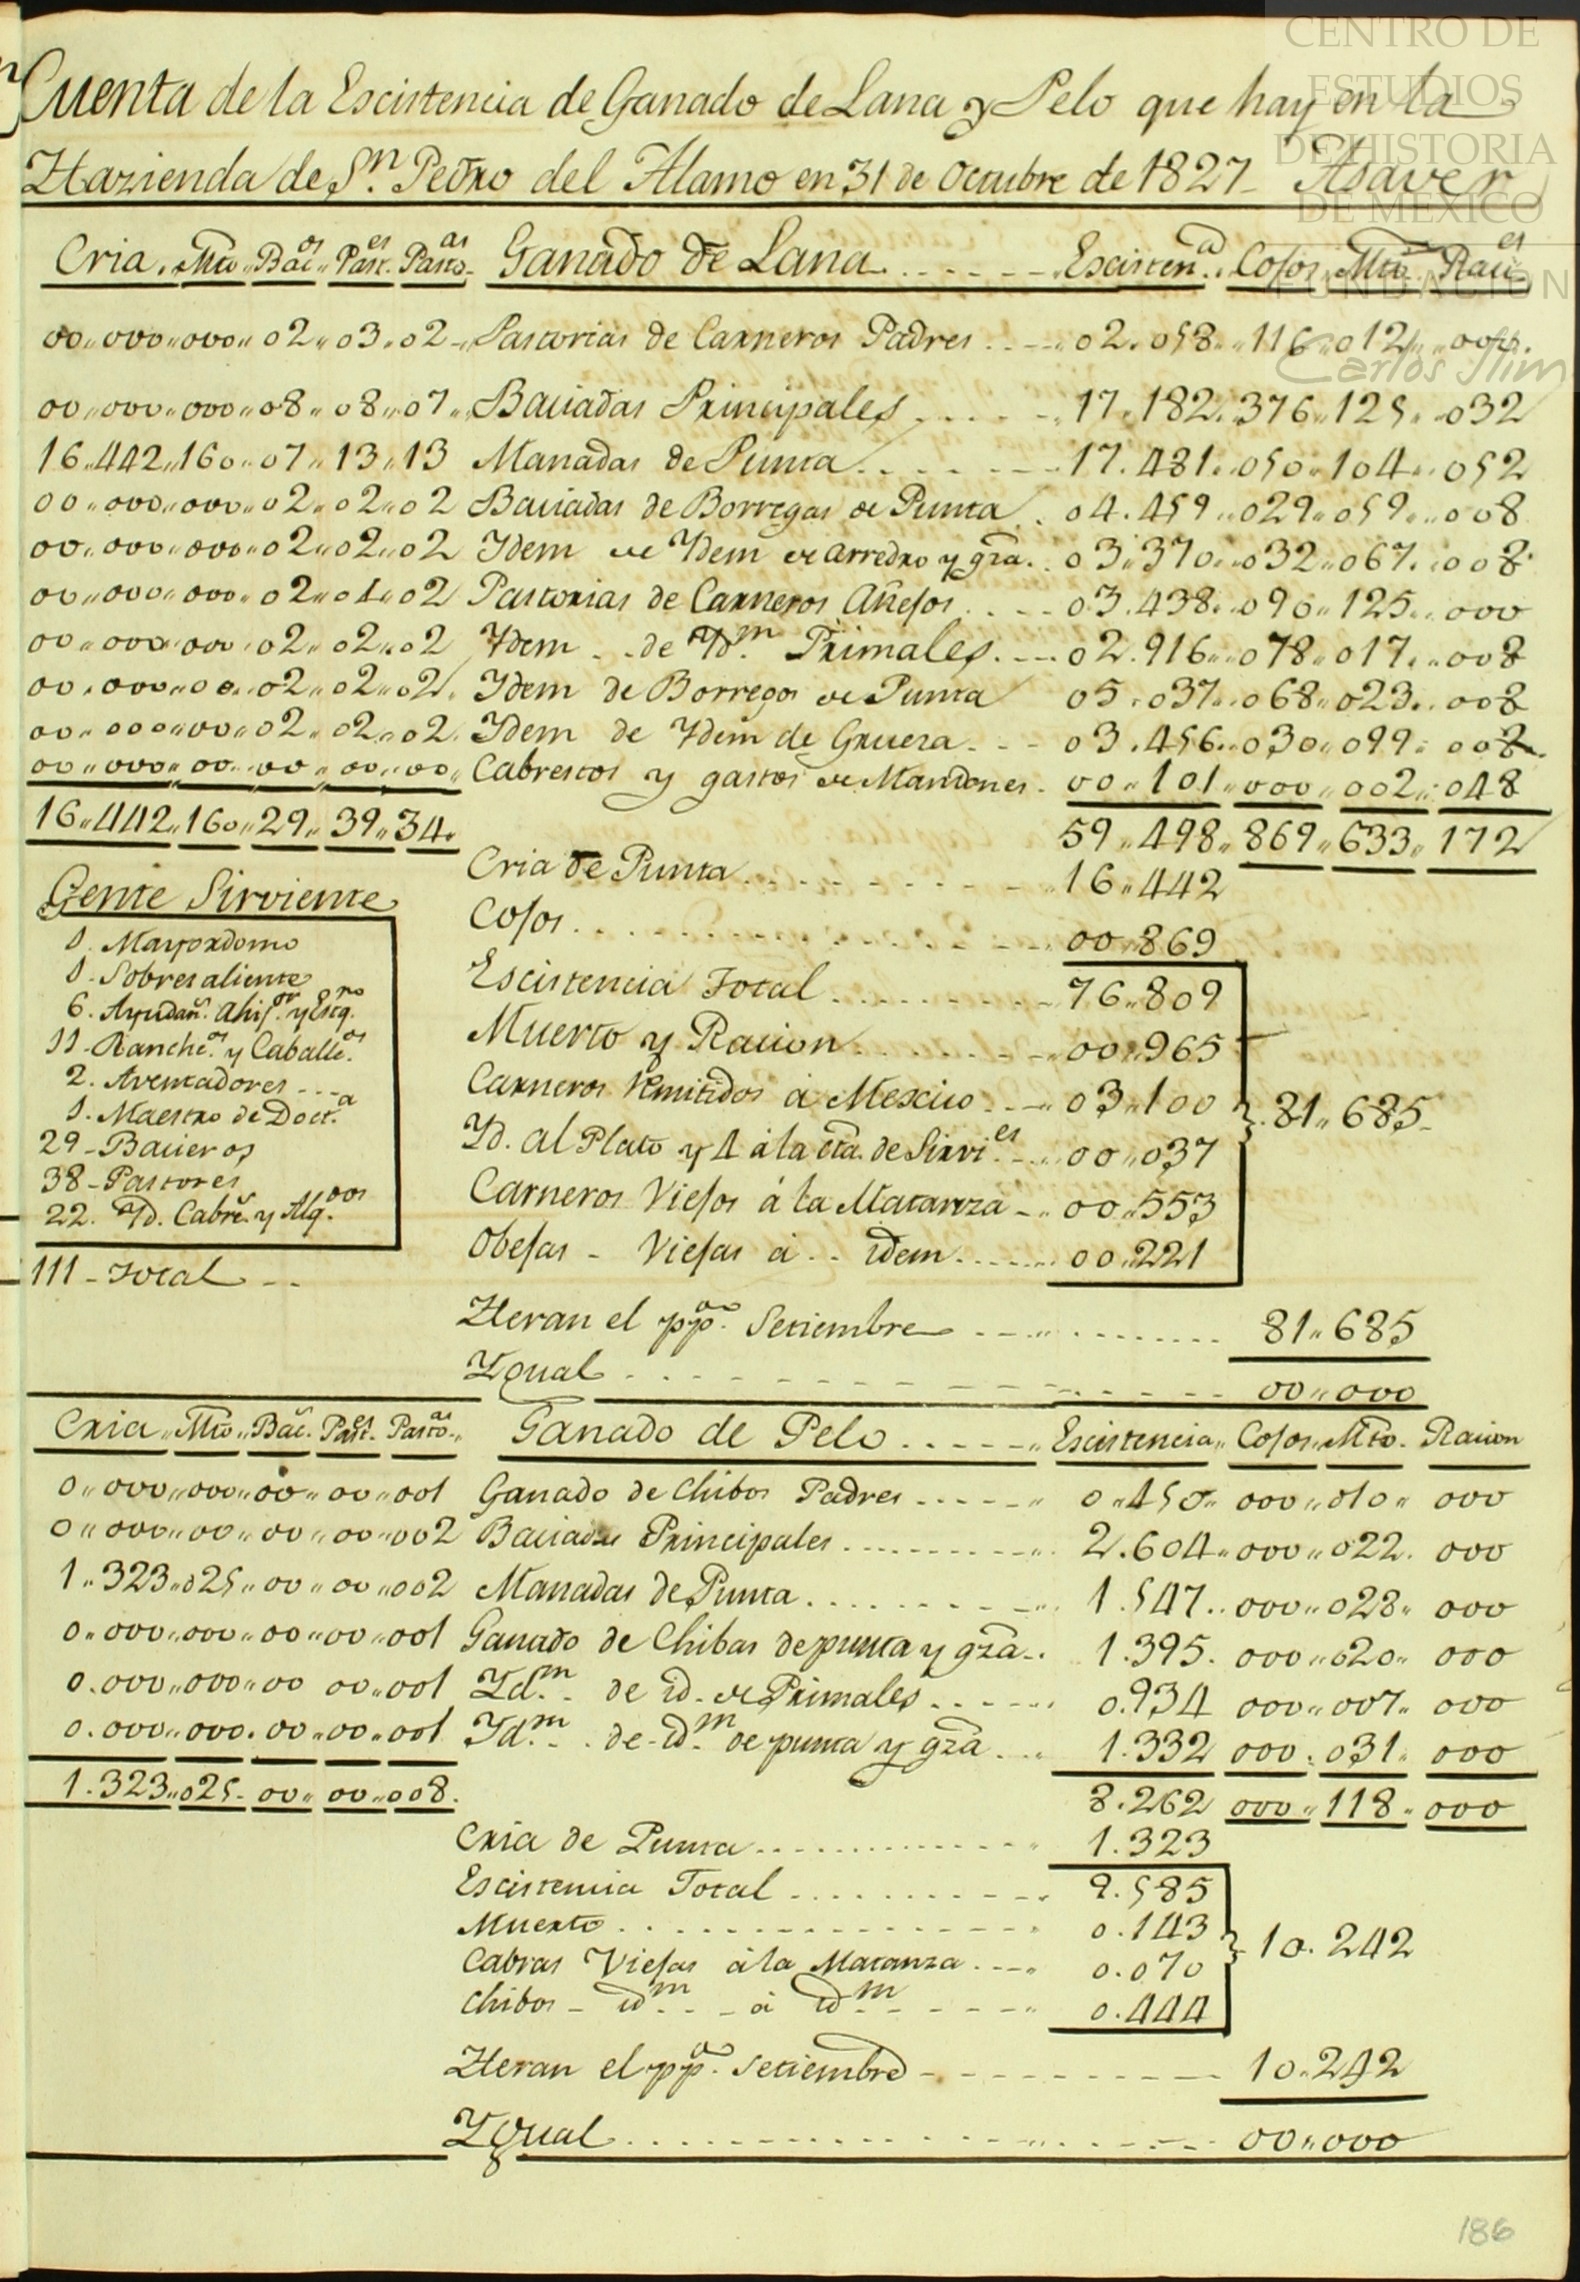 Cuenta de la Escistencia de Ganado de Lana y Pelo que hay en la
Hazienda de Sn. Pedro del Alamo en 31 de Octubre de 1827 Asaver
Cria. Mto. Bac.os Past.es Pasto.as Ganado de Lana Escisten.a Cojos Mto. Racc.es
00 000 000 02 03 02 Pastorias de Carneros Padres 02.058 116 012 000
00 000 000 08 08 07 Baciadas Principales 17.182 376 125 032
16 442 160 07 13 13 Manadas de Punta 17.481 050 104 052
00 000 000 02 02 02 Baciadas de Borregas de Punta 04.459 029 059 008
00 000 000 02 02 02 Idem de Idem de arredro y gra. 03.370 032 067 008
00 000 000 02 01 02 Pastorias de Carneros Añejos 03.438 090 125 000
00 000 00 02 02 02 Idem de Idm. Primales 02.916 078 017 008
00 000 00 02 02 02 Idem de Borregos de Punta 05.037 068 023 008
00 000 00 02 02 02 Idem de Idem de Gruera 03.456 030 099 008
00 000 00 00 00 00 Cabrestos y gastos de Mantones 00 101 000 002 048
16 442 160 29 39 34 59 498 869 633 172
Cria de Punta 16 442
Cojos 00 869
Escistencia Total 76 809
Muerto y Racion 00 965
Carneros Remitidos á Mexico 03 100 81 685
Yd. al Plato y 4 á la cta. de Sirvi.es 00 037
Carneros Viejos á la Matanza 00 553
Obejas Viejas á idem 00 221
Heran el ppo. Setiembre 81 685
Ygual 00 000
Gente Sirviente
1. Mayordomo
1. Sobresaliente
6. Ayudan. Ahij.or y Escq.no
11 Ranche.os y Caballe.os
2. Aventadores
1. Maestro de Doct.a
29 Bacieros
38 Pastores
22. Yd. Cabre. y Alg.dos
111 Total
Cria Mto. Bac. Past.es Pasto.as Ganado de Pelo Escistencia Cojos Mto. Racion
0 000 000 00 00 001 Ganado de Chibos Padres 0 450 000 010 000
0 000 00 00 00 002 Baciadas Principales 2.604 000 022 000
1 323 025 00 00 002 Manadas de Punta 1.547 000 028 000
0 000 000 00 00 001 Ganado de Chibas de punta y gra. 1.395 000 020 000
0.000 000 00 00 001 Idm. de id. de Primales 0.934 000 007 000
0.000 000 00 00 001 Idm. de idm. de punta y gra. 1.332 000 031 000
1.323 025 00 00 008 8.262 000 118 000
Cria de Punta 1.323
Escistencia Total 9.585
Muerto 0.143
10.242
Cabras Viejas á la Matanza 0.070
Chibos idm. á idm. 0.444
Heran el ppo. Setiembre 10.242
Ygual 00 000
186
CENTRO DE
ESTUDIOS
DE HISTORIA
DE MEXICO
FUNDACION
Carlos Slim